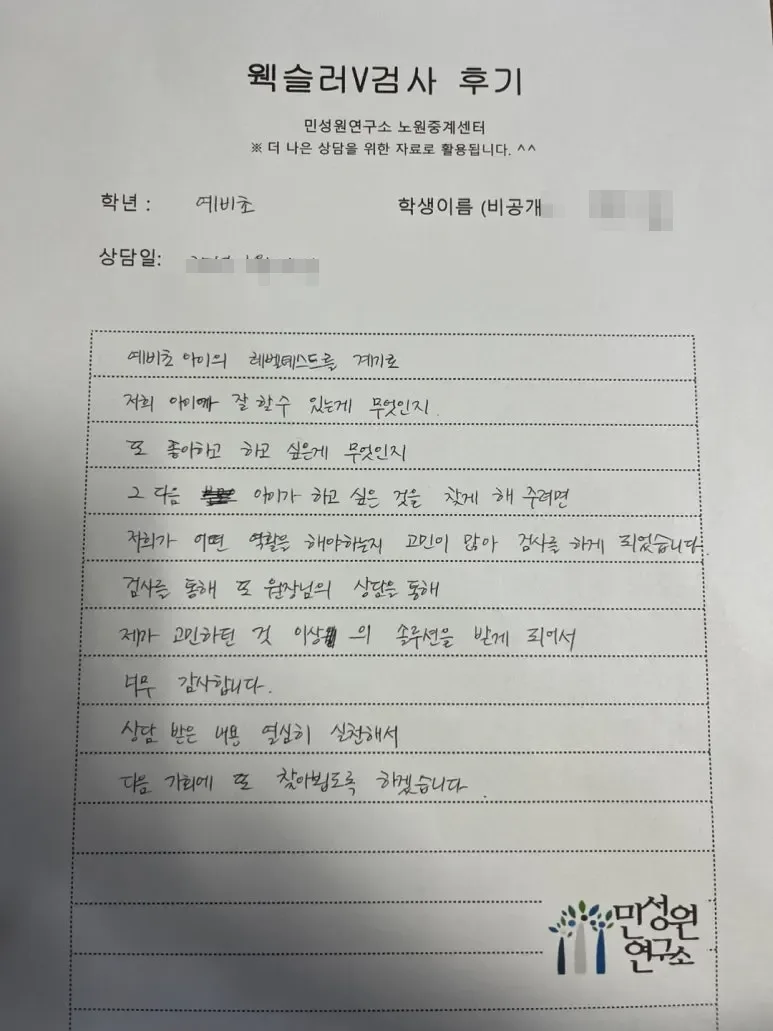 웩슬러V검사 후기
민성원연구소 노원중계센터
※ 더 나은 상담을 위한 자료로 활용됩니다. ^^
학년 : 예비초 학생이름 (비공개
상담일:
예비초 아이의 레벨테스트를 계기로
저희 아이가 잘 할 수 있는게 무엇인지
또 좋아하고 하고 싶은게 무엇인지
그 다음 아이가 하고 싶은 것을 찾게 해 주려면
저희가 어떤 역활을 해야하는지 고민이 많아 검사를 하게 되었습니다.
검사를 통해 또 원장님의 상담을 통해
제가 고민하던 것 이상의 솔루션을 받게 되어서
너무 감사합니다.
상담 받은 내용 열심히 실천해서
다음 기회에 또 찾아뵙도록 하겠습니다.
민성원
연구소